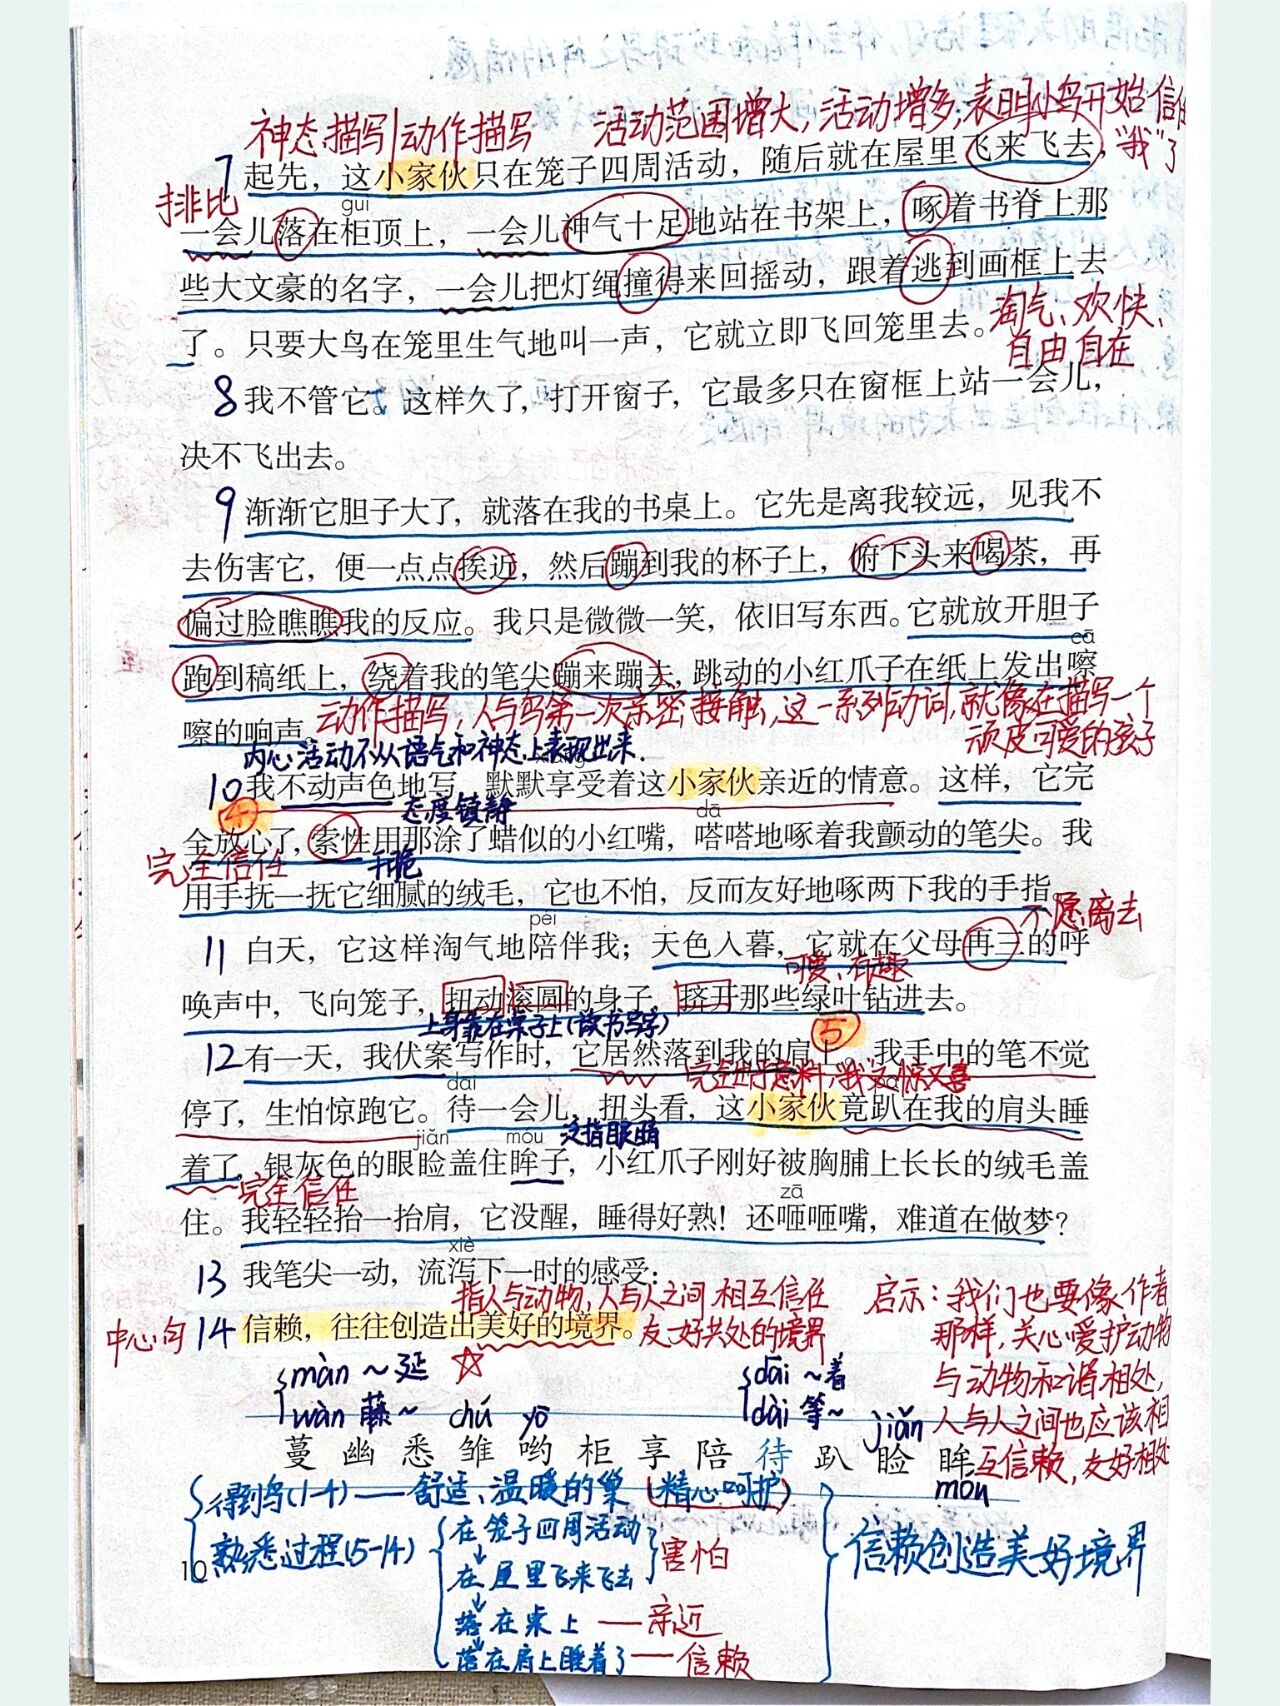 神态描写/动作描写 活动范围增大,活动增多,表明小鸟开始信任
"我"了
7 起先，这小家伙只在笼子四周活动，随后就在屋里飞来飞去，
排比
guì
一会儿落在柜顶上，一会儿神气十足地站在书架上，啄着书脊上那
些大文豪的名字，一会儿把灯绳撞得来回摇动，跟着逃到画框上去
了。只要大鸟在笼里生气地叫一声，它就立即飞回笼里去。
淘气、欢快、
自由自在
8 我不管它。这样久了，打开窗子，它最多只在窗框上站一会儿，
决不飞出去。
9 渐渐它胆子大了，就落在我的书桌上。它先是离我较远，见我不
去伤害它，便一点点挨近，然后蹦到我的杯子上，俯下头来喝茶，再
偏过脸瞧瞧我的反应。我只是微微一笑，依旧写东西。它就放开胆子
cā
跑到稿纸上，绕着我的笔尖蹦来蹦去，跳动的小红爪子在纸上发出嚓
嚓的响声。
动作描写,人与鸟第一次亲密接触,这一系列动词,就像在描写一个
顽皮可爱的孩子
内心活动不从语气和神态上表现出来.
xiǎng
10 我不动声色地写，默默享受着这小家伙亲近的情意。这样，它完
④ 态度镇静
dā
全放心了，索性用那涂了蜡似的小红嘴，嗒嗒地啄着我颤动的笔尖。我
完全信任 干脆
用手抚一抚它细腻的绒毛，它也不怕，反而友好地啄两下我的手指。
péi
不愿离去
11 白天，它这样淘气地陪伴我；天色入暮，它就在父母再三的呼
可爱、有趣
唤声中，飞向笼子，扭动滚圆的身子，挤开那些绿叶钻进去。
上身靠在桌子上(读书写字) ⑤
12 有一天，我伏案写作时，它居然落到我的肩上。我手中的笔不觉
dāi 完全出乎意料,"我"又惊又喜 pā
停了，生怕惊跑它。待一会儿，扭头看，这小家伙竟趴在我的肩头睡
jiǎn móu 泛指眼睛
着了，银灰色的眼睑盖住眸子，小红爪子刚好被胸脯上长长的绒毛盖
完全信任 zā
住。我轻轻抬一抬肩，它没醒，睡得好熟！还咂咂嘴，难道在做梦？
xiè
13 我笔尖一动，流泻下一时的感受：
指人与动物,人与人之间相互信任
中心句 14 信赖，往往创造出美好的境界。友好共处的境界
启示:我们也要像作者
那样,关心爱护动物
与动物和谐相处,
人与人之间也应该相
互信赖,友好相处
màn ~延 ☆ dāi ~着
wàn 藤~ chú yō dài 等~ jiǎn
蔓 幽 悉 雏 哟 柜 享 陪 待 趴 睑 眸
móu
得到鸟(1-4)——舒适、温暖的巢 (精心呵护)
熟悉过程(5-14) 在笼子四周活动
10
↓ 害怕
在屋里飞来飞去
↓
落在桌上——亲近
↓
落在肩上睡着了——信赖
信赖创造美好境界